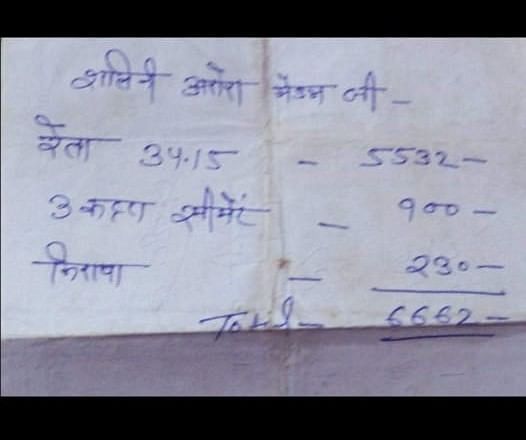 शालिनी अरोरा मैडम जी -
रेता 34.15 - 5532-
3 कट्टा सीमेंट - 900-
किराया - 230-
Total - 6662-